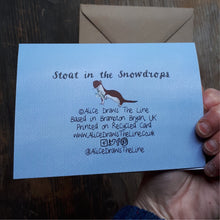 Stoat in the Snowdrops
©Alice Draws The Line
Based in Brampton Bryan, UK
Printed on Recycled Card
www.AliceDrawsTheLine.co.uk
@AliceDrawsTheLine